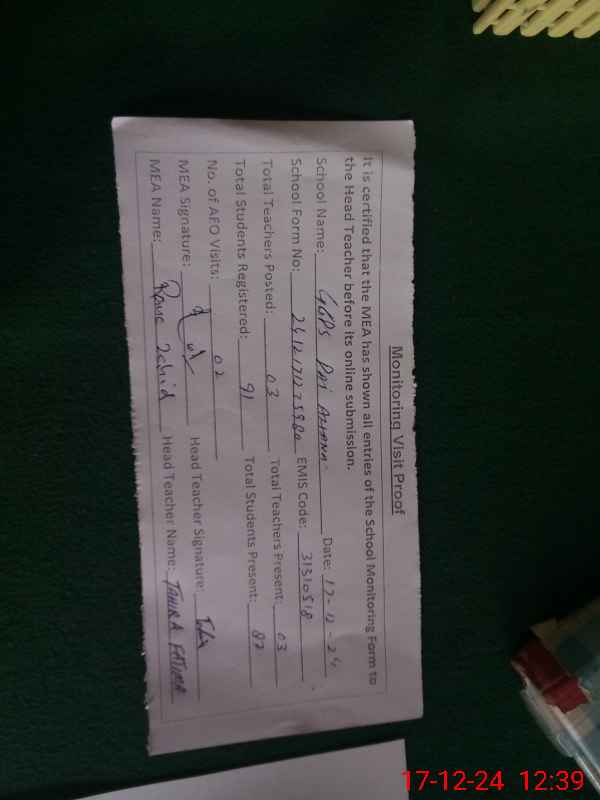 Monitoring Visit Proof
It is certified that the MEA has shown all entries of the School Monitoring Form to
the Head Teacher before its online submission.
School Name: GGPS Date: 17-12-24
School Form No: EMIS Code: 31310518
Total Teachers Posted: 03 Total Teachers Present: 03
Total Students Registered: 91 Total Students Present: 87
No. of AEO Visits: 02
MEA Signature: Head Teacher Signature:
MEA Name: Head Teacher Name: TAHIRA FATIMA
17-12-24 12:39